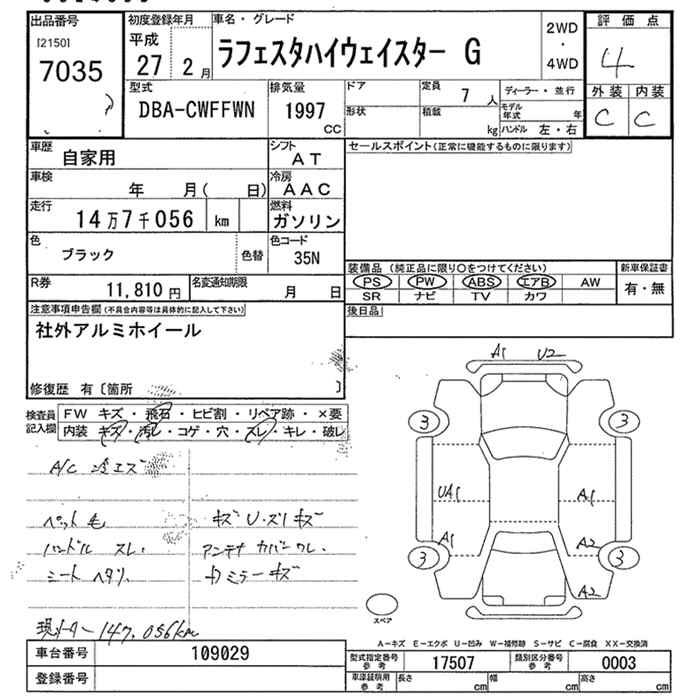 出品番号
[2150]
7035
初度登録年月
平成
27 2月
車名・グレード
ラフェスタハイウェイスター G
2WD
・
4WD
評価点
4
外装 内装
C C
型式
DBA-CWFFWN
排気量
1997
CC
ドア
定員
7人
形状
積載
kg
ディーラー・並行
モデル年式 年
ハンドル 左・右
車歴
自家用
シフト
AT
車検
年 月( 日)
冷房
AAC
走行
14万7千056 km
燃料
ガソリン
色
ブラック
色替
色コード
35N
R券
11,810円
名変通知期限
月 日
セールスポイント(正常に機能するものに限ります)
装備品 (純正品に限り○をつけてください)
PS PW ABS エアB AW
SR ナビ TV カワ
新車保証書
有・無
後日品
注意事項申告欄(不具合内容等は具体的に記入して下さい)
社外アルミホイール
修復歴 有〔箇所 〕
検査員記入欄
FW キズ・飛石・ヒビ割・リペア跡・×要
内装 キズ・汚レ・コゲ・穴・スレ・キレ・破レ
A/C 冷エズ
ペット毛
ハンドル スレ.
シート ヘタリ.
キズ U・スリキズ
アンテナ カバー ワレ.
ミラーキズ
現メーター 147,056km
A1 U2
3 3
UA1 A1
A1 A2
3 3
A2
スペア
A-キズ E-エクボ U-凹み W-補修跡 S-サビ C-腐食 XX-交換済
車台番号
109029
登録番号
型式指定番号
参考
17507
類別区分番号
参考
0003
車庫証明用
参考
長さ cm
幅 cm
高さ cm